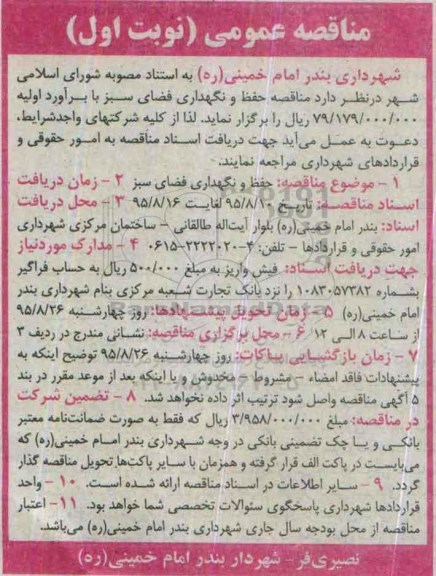 مناقصه عمومی (نوبت اول)
شهرداری بندر امام خمینی(ره) به استناد مصوبه شورای اسلامی
شهر درنظر دارد مناقصه حفظ و نگهداری فضای سبز با برآورد اولیه
۷۹/۱۷۹/۰۰۰/۰۰۰ ریال را برگزار نماید. لذا از کلیه شرکتهای واجدشرایط،
دعوت به عمل می‌آید جهت دریافت اسناد مناقصه به امور حقوقی و
قراردادهای شهرداری مراجعه نمایند.
۱ - موضوع مناقصه: حفظ و نگهداری فضای سبز ۲ - زمان دریافت
اسناد مناقصه: تاریخ ۹۵/۸/۱۰ لغایت ۹۵/۸/۱۶ ۳ - محل دریافت
اسناد: بندر امام خمینی(ره) بلوار آیت‌اله طالقانی - ساختمان مرکزی شهرداری
امور حقوقی و قراردادها - تلفن: ۴-۲۲۲۲۰۲۰-۰۶۱۵ ۴ - مدارک موردنیاز
جهت دریافت اسناد: فیش واریز به مبلغ ۵۰۰/۰۰۰ ریال به حساب فراگیر
بشماره ۱۰۸۳۰۵۷۳۸۲ را نزد بانک تجارت شعبه مرکزی بنام شهرداری بندر
امام خمینی(ره) ۵- زمان تحویل پیشنهادها: روز چهارشنبه ۹۵/۸/۲۶
از ساعت ۸ الی ۱۲ ۶ - محل برگزاری مناقصه: نشانی مندرج در ردیف ۳
۷ - زمان بازگشایی پاکات: روز چهارشنبه ۹۵/۸/۲۶ توضیح اینکه به
پیشنهادات فاقد امضاء - مشروط - مخدوش و یا اینکه بعد از موعد مقرر در بند
۵ آگهی مناقصه واصل شود ترتیب اثر داده نخواهد شد. ۸ - تضمین شرکت
در مناقصه: مبلغ ۳/۹۵۸/۰۰۰/۰۰۰ ریال که فقط به صورت ضمانت‌نامه معتبر
بانکی و یا چک تضمینی بانکی در وجه شهرداری بندر امام خمینی(ره) که
می‌بایست در پاکت الف قرار گرفته و همزمان با سایر پاکت‌ها تحویل مناقصه گذار
گردد. ۹ - سایر اطلاعات در اسناد مناقصه ارائه شده است. ۱۰ - واحد
قراردادها شهرداری پاسخگوی سئوالات تخصصی شما خواهد بود. ۱۱ - اعتبار
مناقصه از محل بودجه سال جاری شهرداری بندر امام خمینی(ره) می‌باشد.
نصیری‌فر - شهردار بندر امام خمینی(ره)